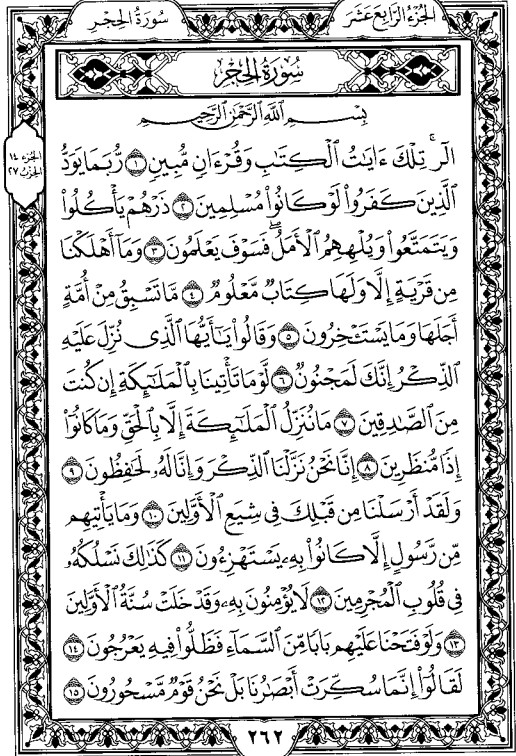 سُورَةُ الحِجْرِ
الجُزءُ الرَّابِعَ عَشَرَ
سُورَةُ الحِجْرِ
بِسْمِ اللَّهِ الرَّحْمَٰنِ الرَّحِيمِ
الجزء ١٤
الحزب ٢٧
الٓرۚ تِلْكَ ءَايَٰتُ ٱلْكِتَٰبِ وَقُرْءَانٍ مُّبِينٍ ١ رُّبَمَا يَوَدُّ
ٱلَّذِينَ كَفَرُوا۟ لَوْ كَانُوا۟ مُسْلِمِينَ ٢ ذَرْهُمْ يَأْكُلُوا۟
وَيَتَمَتَّعُوا۟ وَيُلْهِهِمُ ٱلْأَمَلُۖ فَسَوْفَ يَعْلَمُونَ ٣ وَمَآ أَهْلَكْنَا
مِن قَرْيَةٍ إِلَّا وَلَهَا كِتَابٌ مَّعْلُومٌ ٤ مَّا تَسْبِقُ مِنْ أُمَّةٍ
أَجَلَهَا وَمَا يَسْتَـْٔخِرُونَ ٥ وَقَالُوا۟ يَٰٓأَيُّهَا ٱلَّذِى نُزِّلَ عَلَيْهِ
ٱلذِّكْرُ إِنَّكَ لَمَجْنُونٌ ٦ لَّوْ مَا تَأْتِينَا بِٱلْمَلَٰٓئِكَةِ إِن كُنتَ
مِنَ ٱلصَّٰدِقِينَ ٧ مَا نُنَزِّلُ ٱلْمَلَٰٓئِكَةَ إِلَّا بِٱلْحَقِّ وَمَا كَانُوٓا۟
إِذًا مُّنظَرِينَ ٨ إِنَّا نَحْنُ نَزَّلْنَا ٱلذِّكْرَ وَإِنَّا لَهُۥ لَحَٰفِظُونَ ٩
وَلَقَدْ أَرْسَلْنَا مِن قَبْلِكَ فِى شِيَعِ ٱلْأَوَّلِينَ ١٠ وَمَا يَأْتِيهِم
مِّن رَّسُولٍ إِلَّا كَانُوا۟ بِهِۦ يَسْتَهْزِءُونَ ١١ كَذَٰلِكَ نَسْلُكُهُۥ
فِى قُلُوبِ ٱلْمُجْرِمِينَ ١٢ لَا يُؤْمِنُونَ بِهِۦ وَقَدْ خَلَتْ سُنَّةُ ٱلْأَوَّلِينَ
١٣ وَلَوْ فَتَحْنَا عَلَيْهِم بَابًا مِّنَ ٱلسَّمَآءِ فَظَلُّوا۟ فِيهِ يَعْرُجُونَ ١٤
لَقَالُوٓا۟ إِنَّمَا سُكِّرَتْ أَبْصَٰرُنَا بَلْ نَحْنُ قَوْمٌ مَّسْحُورُونَ ١٥
٢٦٢